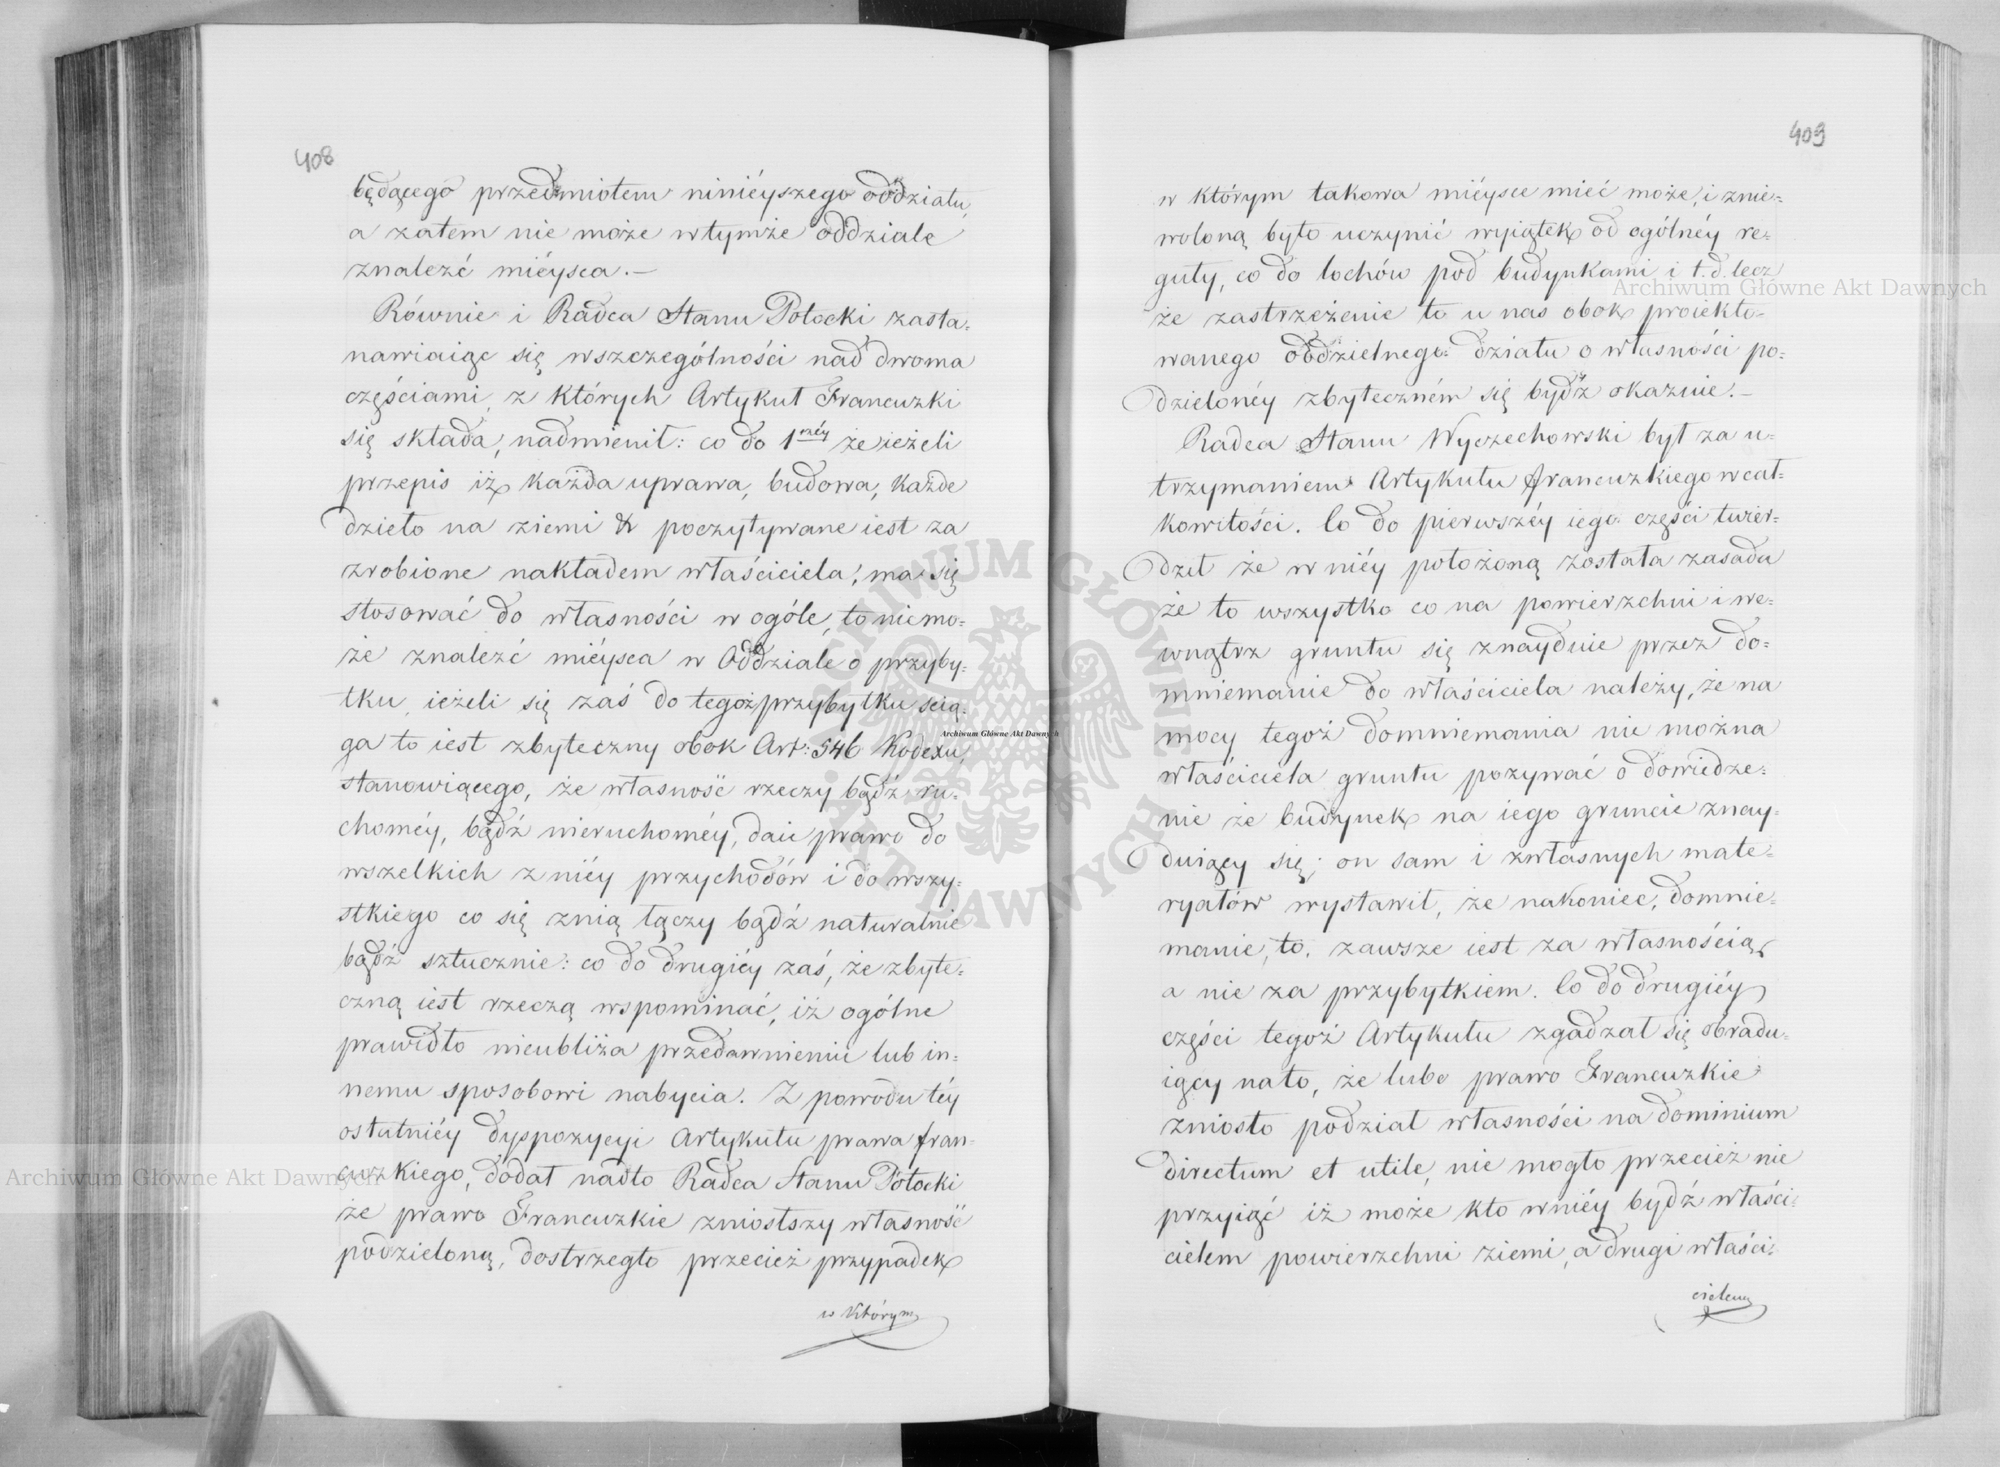 408
będącego przedmiotem ninieyszego oddziału,
a zatem nie może w tymże oddziale
znaleźć mieysca.—
Równie i Radca Stanu Potocki zasta-
nawiaiąc się wszczególności nad dwoma
częściami, z których Artykuł Francuzki
się składa, nadmienił: co do 1széy że ieżeli
przepis iż każda uprawa, budowa, każde
dzieło na ziemi & poczytywane iest za
zrobione nakładem właściciela, ma się
stosować do własności w ogóle, to niemo-
że znaleźć miéysca w Oddziale o przyby-
tku, ieżeli się zaś do tegoż przybytku ścią-
ga to iest zbyteczny obok Art: 546 Kodexu,
stanowiącego, że własność rzeczy bądź ru-
choméy, bądź nieruchoméy, daie prawo do
wszelkich z niéy przychodów i do wszy-
stkiego co się znią łączy bądź naturalnie
bądź sztucznie: co do drugiéy zaś, że zbyte-
czną iest rzeczą wspominać, iż ogólne
prawidło nieubliża przedawnieniu lub in-
nemu sposobowi nabycia. Z powodu téy
ostatniéy dyspozycyi Artykułu prawa fran-
cuzkiego, dodał nadto Radca Stanu Potocki
że prawo Francuzkie zniosłszy własność
podzieloną, dostrzegło przecież przypadek
w którym
409
w którym takowa miéysce mieć może, i znie-
woloną było uczynić wyiątek od ogólnéy re-
guły, co do lochów pod budynkami i t.d. lecz
że zastrzeżenie to u nas obok proiekto-
wanego oddzielnego działu o własności po-
dzielonéy zbyteczném się bydź okazuie.—
Radca Stanu Wyczechowski był za u-
trzymaniem Artykułu francuzkiego w cał-
kowitości. Co do pierwszéy iego części twier-
dził że w niéy położoną została zasada
że to wszystko co na powierzchni i we-
wnątrz gruntu się znayduie przez do-
mniemanie do właściciela należy, że na
mocy tegoż domniemania nie można
właściciela gruntu pozywać o dowiedze-
nie że budynek na iego gruncie znay-
duiący się, on sam i z własnych mate-
ryałów wystawił, że nakoniec, domnie-
manie, to, zawsze iest za własnością,
a nie za przybytkiem. Co do drugiéy
części tegoż Artykułu zgadzał się obradu-
iący na to, że lubo prawo Francuzkie
zniosło podział własności na dominium
directum et utile, nie mogło przecież nie
przyiąć iż może kto w niéy bydź właści-
cielem powierzchni ziemi, a drugi właści-
cielem
Archiwum Główne Akt Dawnych
Archiwum Główne Akt Dawnych
Archiwum Główne Akt Dawnych
ARCHIWUM GŁÓWNE AKT DAWNYCH